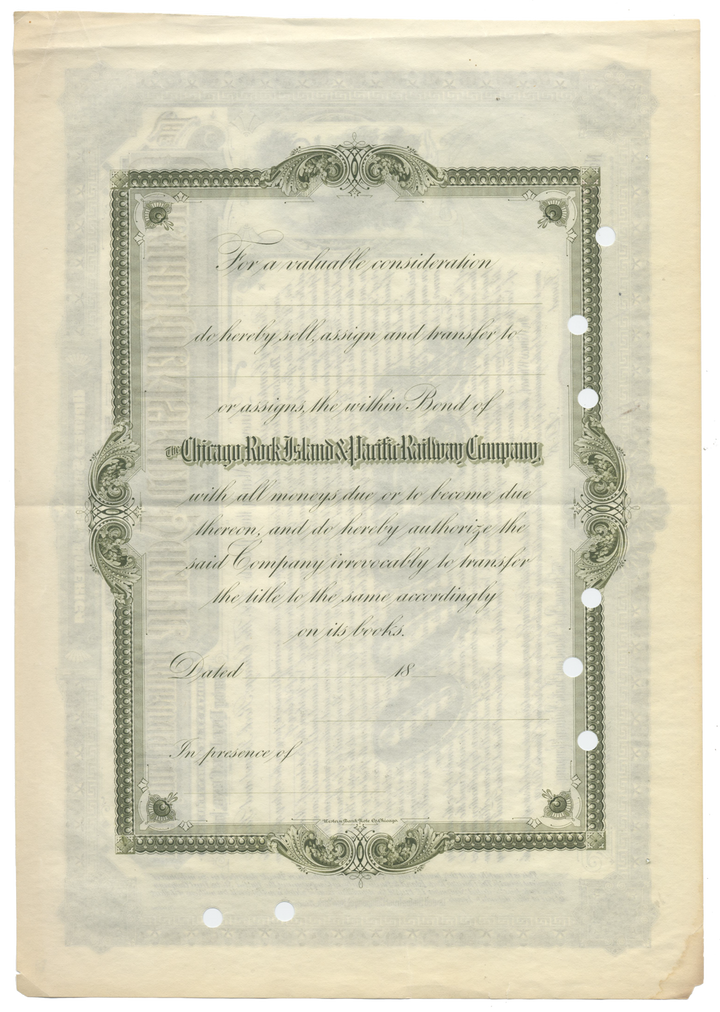 For a valuable consideration
do hereby sell, assign and transfer to
or assigns, the within Bond of
The Chicago Rock Island & Pacific Railway Company,
with all moneys due or to become due
thereon, and do hereby authorize the
said Company irrevocably to transfer
the title to the same accordingly
on its books.
Dated 18
In presence of